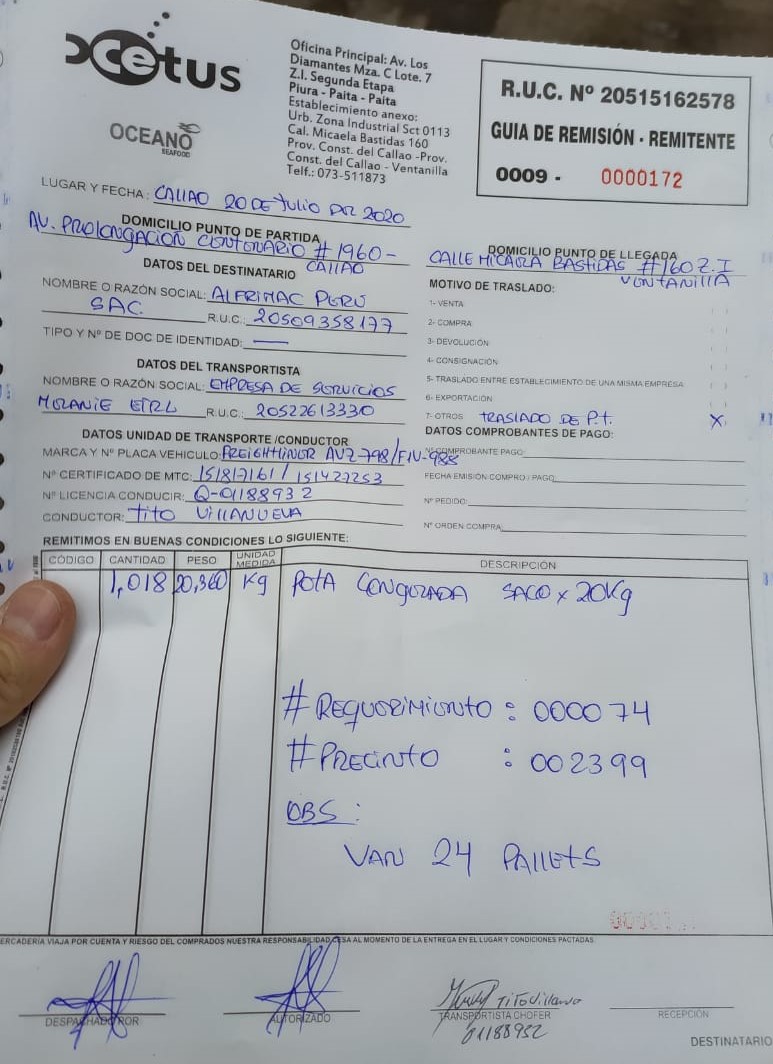 cetus
OCEANO
SEAFOOD
Oficina Principal: Av. Los
Diamantes Mza. C Lote. 7
Z.I. Segunda Etapa
Piura - Paita - Paita
Establecimiento anexo:
Urb. Zona Industrial Sct 0113
Cal. Micaela Bastidas 160
Prov. Const. del Callao -Prov.
Const. del Callao - Ventanilla
Telf.: 073-511873
R.U.C. Nº 20515162578
GUIA DE REMISIÓN - REMITENTE
0009 - 0000172
LUGAR Y FECHA: CALLAO 20 DE JULIO DEL 2020
DOMICILIO PUNTO DE PARTIDA
AV. PROLONGACION CENTENARIO #1960-
CALLAO
DOMICILIO PUNTO DE LLEGADA
CALLE MICAELA BASTIDAS #160 Z.I
VENTANILLA
DATOS DEL DESTINATARIO
NOMBRE O RAZÓN SOCIAL: ALFRIMAC PERU
SAC. R.U.C.: 20509358177
TIPO Y Nº DE DOC DE IDENTIDAD: —
DATOS DEL TRANSPORTISTA
NOMBRE O RAZÓN SOCIAL: EMPRESA DE SERVICIOS
MELANIE EIRL R.U.C.: 20522613330
DATOS UNIDAD DE TRANSPORTE /CONDUCTOR
MARCA Y Nº PLACA VEHICULO: FREIGHTLINER AVZ-798/F1V-988
Nº CERTIFICADO DE MTC: 151817161 / 151427253
Nº LICENCIA CONDUCIR: Q-01188932
CONDUCTOR: TITO VILLANUEVA
MOTIVO DE TRASLADO:
1- VENTA
2- COMPRA
3- DEVOLUCIÓN
4- CONSIGNACIÓN
5- TRASLADO ENTRE ESTABLECIMIENTO DE UNA MISMA EMPRESA
6- EXPORTACIÓN
7- OTROS TRASLADO DE P.T. X
DATOS COMPROBANTES DE PAGO:
Nº COMPROBANTE PAGO:
FECHA EMISIÓN COMPRO / PAGO:
Nº PEDIDO:
Nº ORDEN COMPRA:
REMITIMOS EN BUENAS CONDICIONES LO SIGUIENTE:
CÓDIGO CANTIDAD PESO UNIDAD MEDIDA DESCRIPCIÓN
1,018 20,360 Kg POTA CONGELADA SACO x 20Kg
#REQUERIMIENTO : 000074
#PRECINTO : 002399
OBS :
VAN 24 PALLETS
ERCADERÍA VIAJA POR CUENTA Y RIESGO DEL COMPRADOS NUESTRA RESPONSABILIDAD CESA AL MOMENTO DE LA ENTREGA EN EL LUGAR Y CONDICIONES PACTADAS
DESPACHADO POR
AUTORIZADO
Tito Villanueva
TRANSPORTISTA CHOFER
01188932
RECEPCIÓN
DESTINATARIO